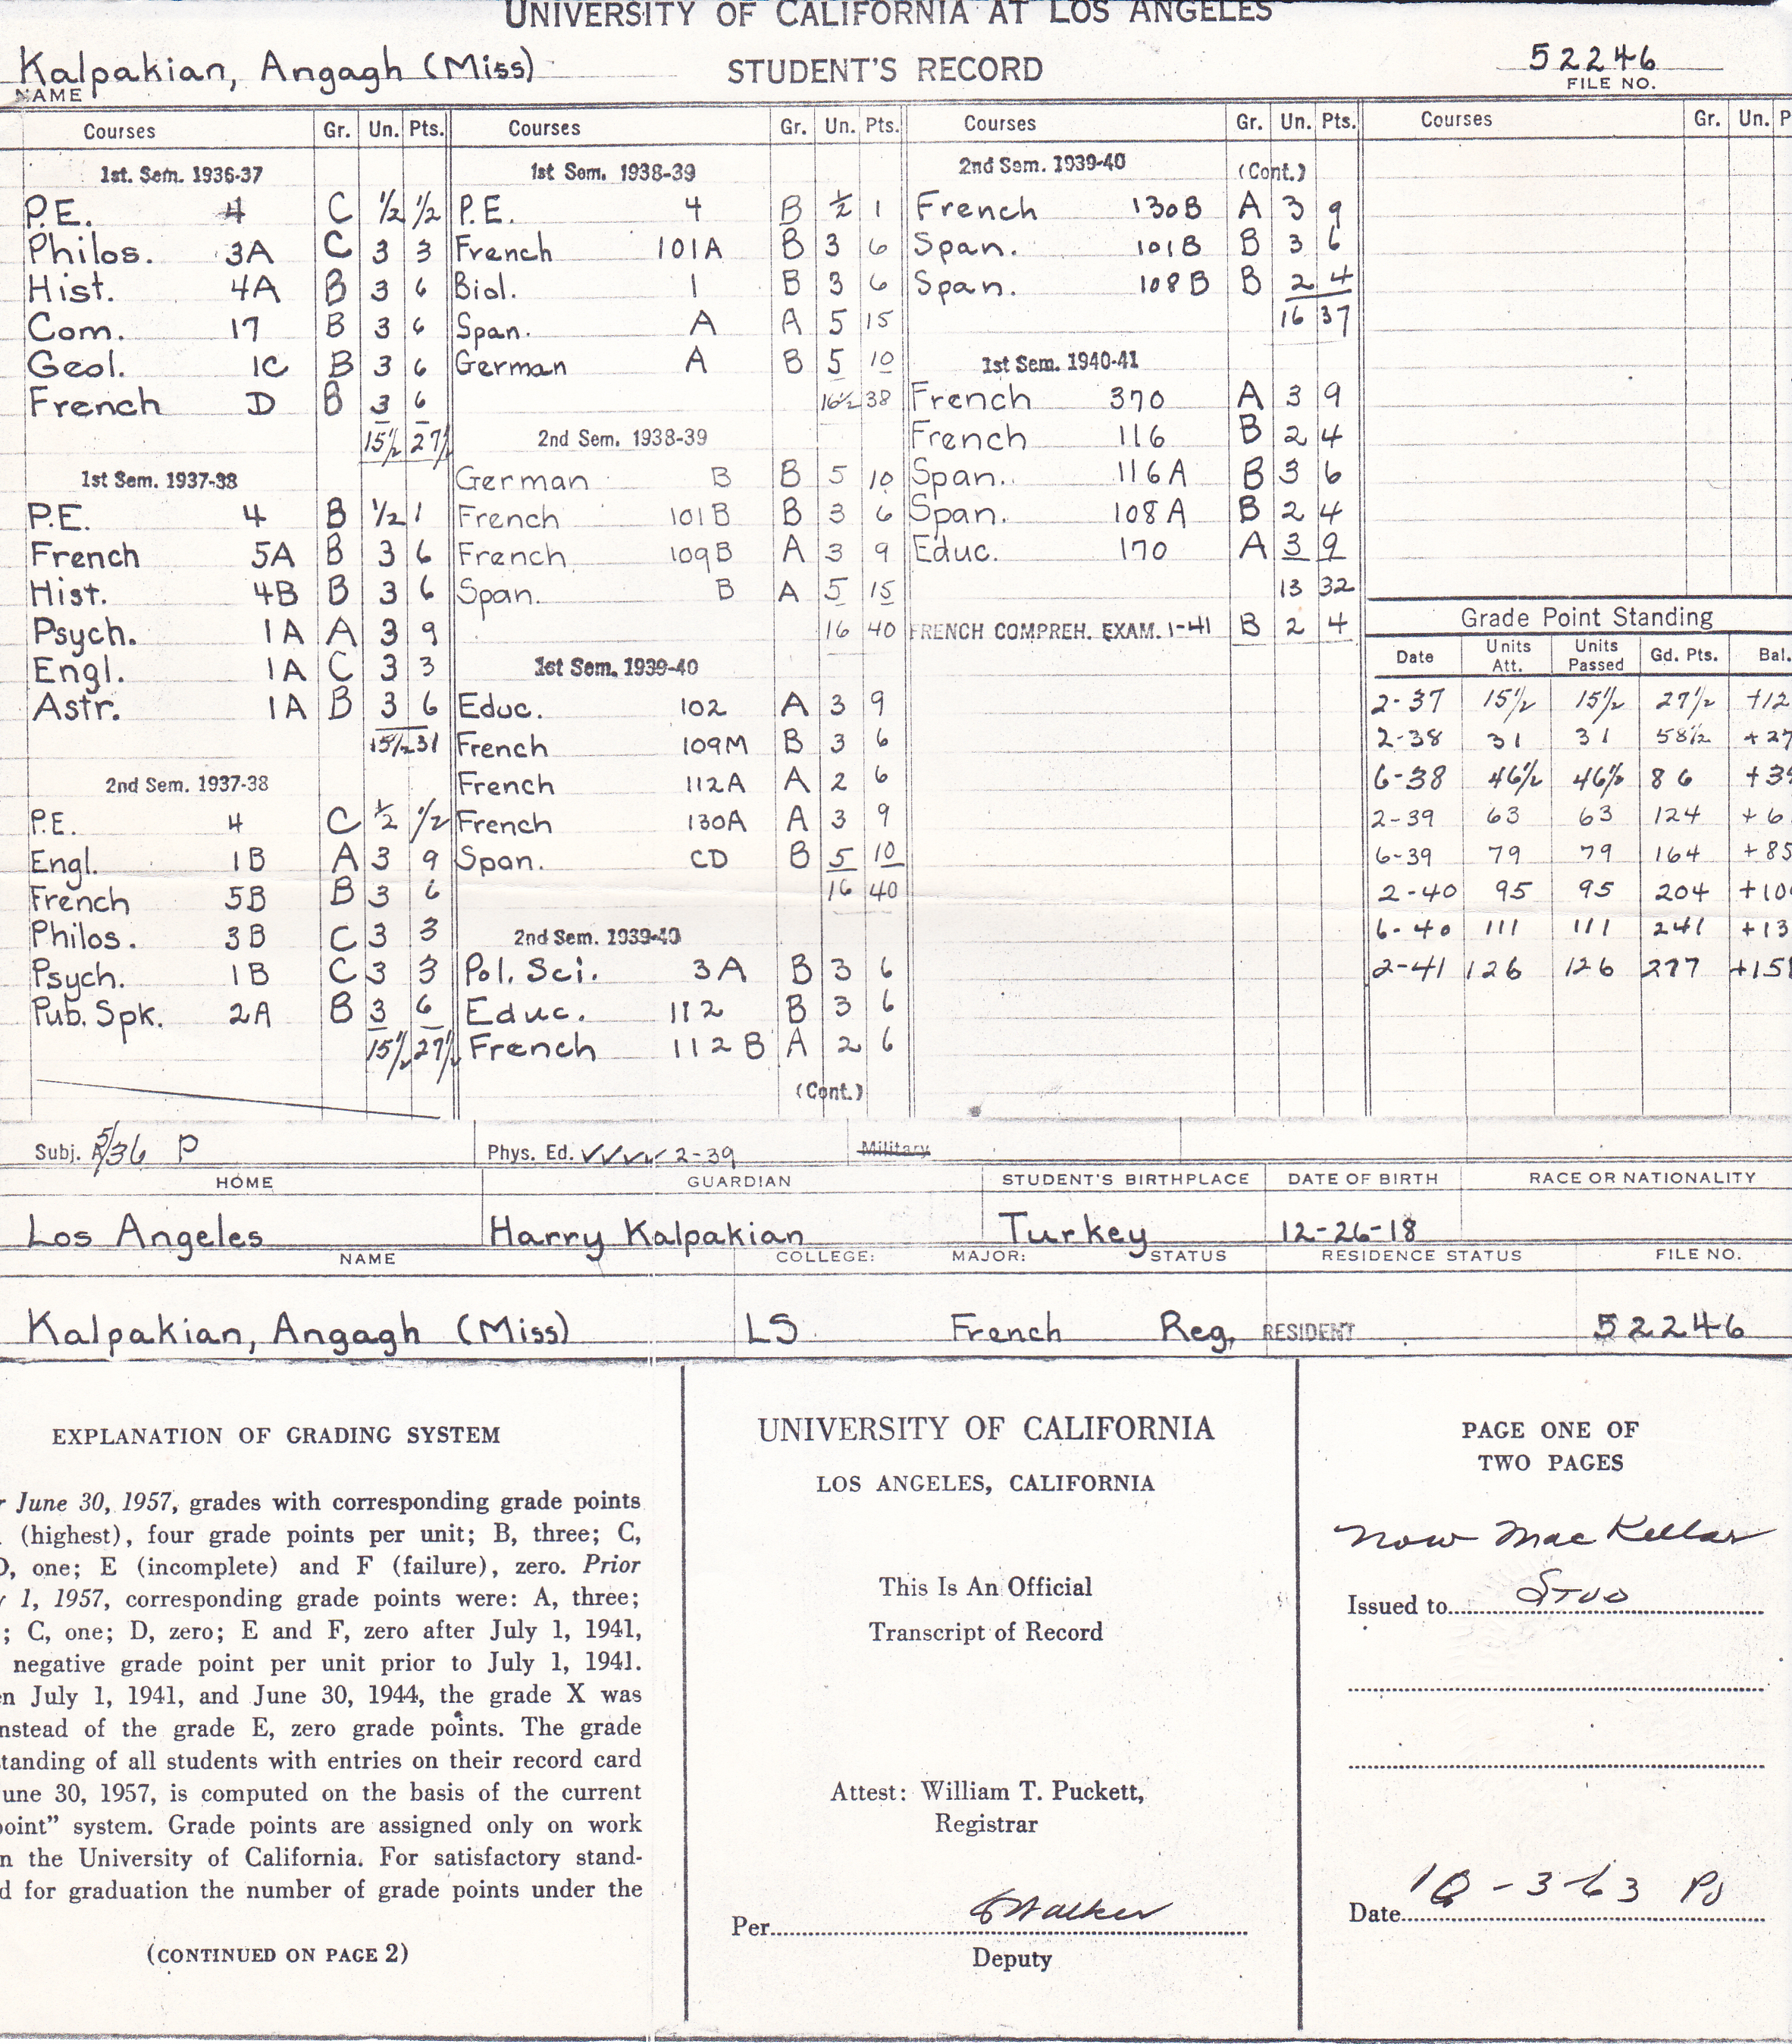 UNIVERSITY OF CALIFORNIA AT LOS ANGELES
Kalpakian, Angagh (Miss)
NAME
STUDENT'S RECORD
52246
FILE NO.
Courses Gr. Un. Pts.
1st. Sem. 1936-37
P.E. 4 C 1/2 1/2
Philos. 3A C 3 3
Hist. 4A B 3 6
Com. 17 B 3 6
Geol. 1C B 3 6
French D B 3 6
15 1/2 27 1/2
1st Sem. 1937-38
P.E. 4 B 1/2 1
French 5A B 3 6
Hist. 4B B 3 6
Psych. 1A A 3 9
Engl. 1A C 3 3
Astr. 1A B 3 6
15 1/2 31
2nd Sem. 1937-38
P.E. 4 C 1/2 1/2
Engl. 1B A 3 9
French 5B B 3 6
Philos. 3B C 3 3
Psych. 1B C 3 3
Pub. Spk. 2A B 3 6
15 1/2 27 1/2
Courses Gr. Un. Pts.
1st Sem. 1938-39
P.E. 4 B 1/2 1
French 101A B 3 6
Biol. 1 B 3 6
Span. A A 5 15
German A B 5 10
16 1/2 38
2nd Sem. 1938-39
German B B 5 10
French 101B B 3 6
French 109B A 3 9
Span. B A 5 15
16 40
1st Sem. 1939-40
Educ. 102 A 3 9
French 109M B 3 6
French 112A A 2 6
French 130A A 3 9
Span. CD B 5 10
16 40
2nd Sem. 1939-40
Pol. Sci. 3A B 3 6
Educ. 112 B 3 6
French 112B A 2 6
(Cont.)
Courses Gr. Un. Pts.
2nd Sem. 1939-40 (Cont.)
French 130B A 3 9
Span. 101B B 3 6
Span. 108B B 2 4
16 37
1st Sem. 1940-41
French 370 A 3 9
French 116 B 2 4
Span. 116A B 3 6
Span. 108A B 2 4
Educ. 170 A 3 9
13 32
FRENCH COMPREH. EXAM. 1-41 B 2 4
Courses Gr. Un. P
Grade Point Standing
Date Units Att. Units Passed Gd. Pts. Bal.
2-37 15 1/2 15 1/2 27 1/2 +12
2-38 31 31 58 1/2 +27
6-38 46 1/2 46 1/2 86 +39
2-39 63 63 124 +6
6-39 79 79 164 +85
2-40 95 95 204 +10
6-40 111 111 241 +13
2-41 126 126 277 +15
Subj. 5/36 P
Phys. Ed. ✓✓✓✓ 2-39
Military
HOME GUARDIAN STUDENT'S BIRTHPLACE DATE OF BIRTH RACE OR NATIONALITY
Los Angeles Harry Kalpakian Turkey 12-26-18
NAME COLLEGE: MAJOR: STATUS RESIDENCE STATUS FILE NO.
Kalpakian, Angagh (Miss) LS French Reg. RESIDENT 52246
EXPLANATION OF GRADING SYSTEM
June 30, 1957, grades with corresponding grade points
(highest), four grade points per unit; B, three; C,
D, one; E (incomplete) and F (failure), zero. Prior
1, 1957, corresponding grade points were: A, three;
; C, one; D, zero; E and F, zero after July 1, 1941,
negative grade point per unit prior to July 1, 1941.
en July 1, 1941, and June 30, 1944, the grade X was
nstead of the grade E, zero grade points. The grade
standing of all students with entries on their record card
une 30, 1957, is computed on the basis of the current
point" system. Grade points are assigned only on work
n the University of California. For satisfactory stand-
d for graduation the number of grade points under the
(CONTINUED ON PAGE 2)
UNIVERSITY OF CALIFORNIA
LOS ANGELES, CALIFORNIA
This Is An Official
Transcript of Record
Attest: William T. Puckett,
Registrar
Per Walker
Deputy
PAGE ONE OF
TWO PAGES
now MacKellar
Issued to Stud
Date 10-3-63